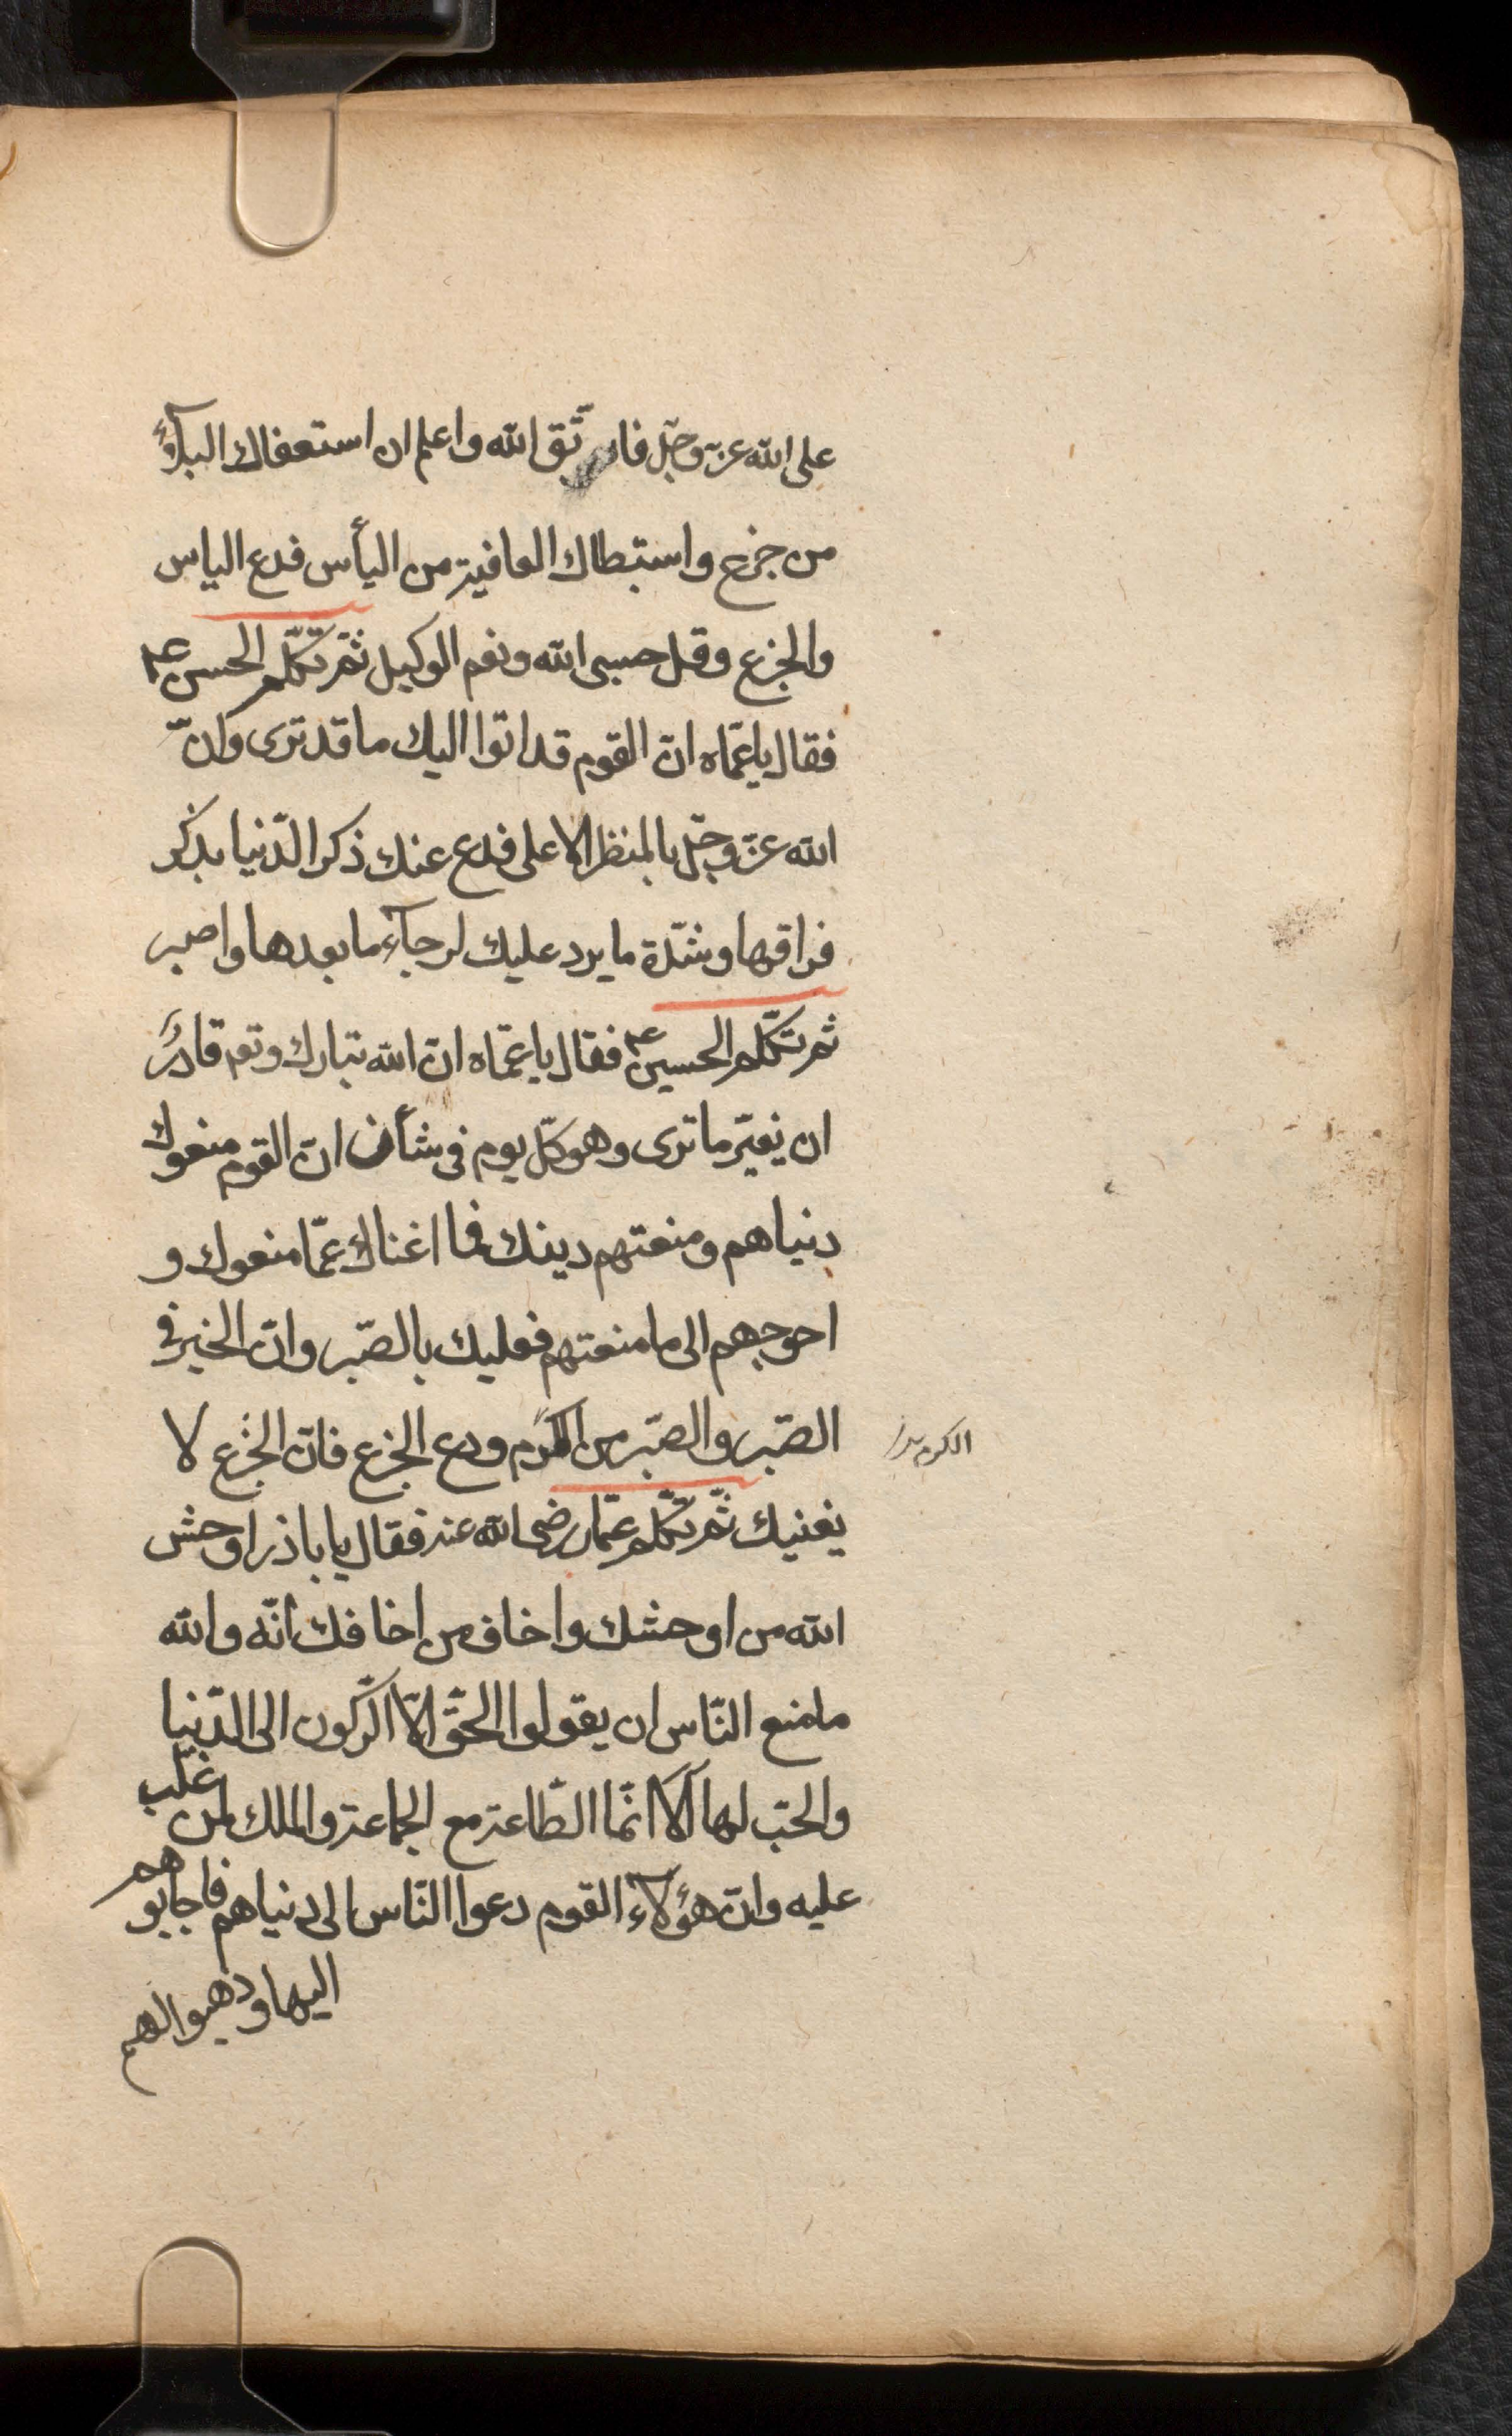 على الله عزّ وجلّ فاتّق الله واعلم ان استعفاك البلآء
من جزع واستبطاك العافية من اليأس فدع الياس
والجزع وقل حسبى الله ونعم الوكيل ثمّ تكلّم الحسن ع
فقال يا عمّاه انّ القوم قد اتوا اليك ما قد ترى وانّ
الله عزّ وجلّ بالمنظر الاعلى فدع عنك ذكر الدّنيا بذكر
فراقها وشدّة ما يرد عليك لرجآء ما بعدها واصبر
ثم تكلّم الحسين ع فقال يا عمّاه انّ الله تبارك وتع قادرٌ
ان يغيّر ما ترى وهو كلّ يوم فى شأن انّ القوم منعوك
دنياهم ومنعتهم دينك فما اغناك عمّا منعوك و
احوجهم الى ما منعتهم فعليك بالصّبر وانّ الخير فى
الصّبر والصّبر من الكرم ودع الجزع فانّ الجزع لا
يغنيك ثمّ تكلّم عمّار رضى الله عنه فقال يا باذر اوحش
الله من اوحشك واخاف من اخافك انّه والله
ما منع النّاس ان يقولوا الحقّ الّا الرّكون الى الدّنيا
والحبّ لها ألا انّما الطّاعة مع الجماعة والملك لمن غلب
عليه وانّ هؤلآء القوم دعوا النّاس الى دنياهم فاجابوهم
اليها ووهبوا لهم